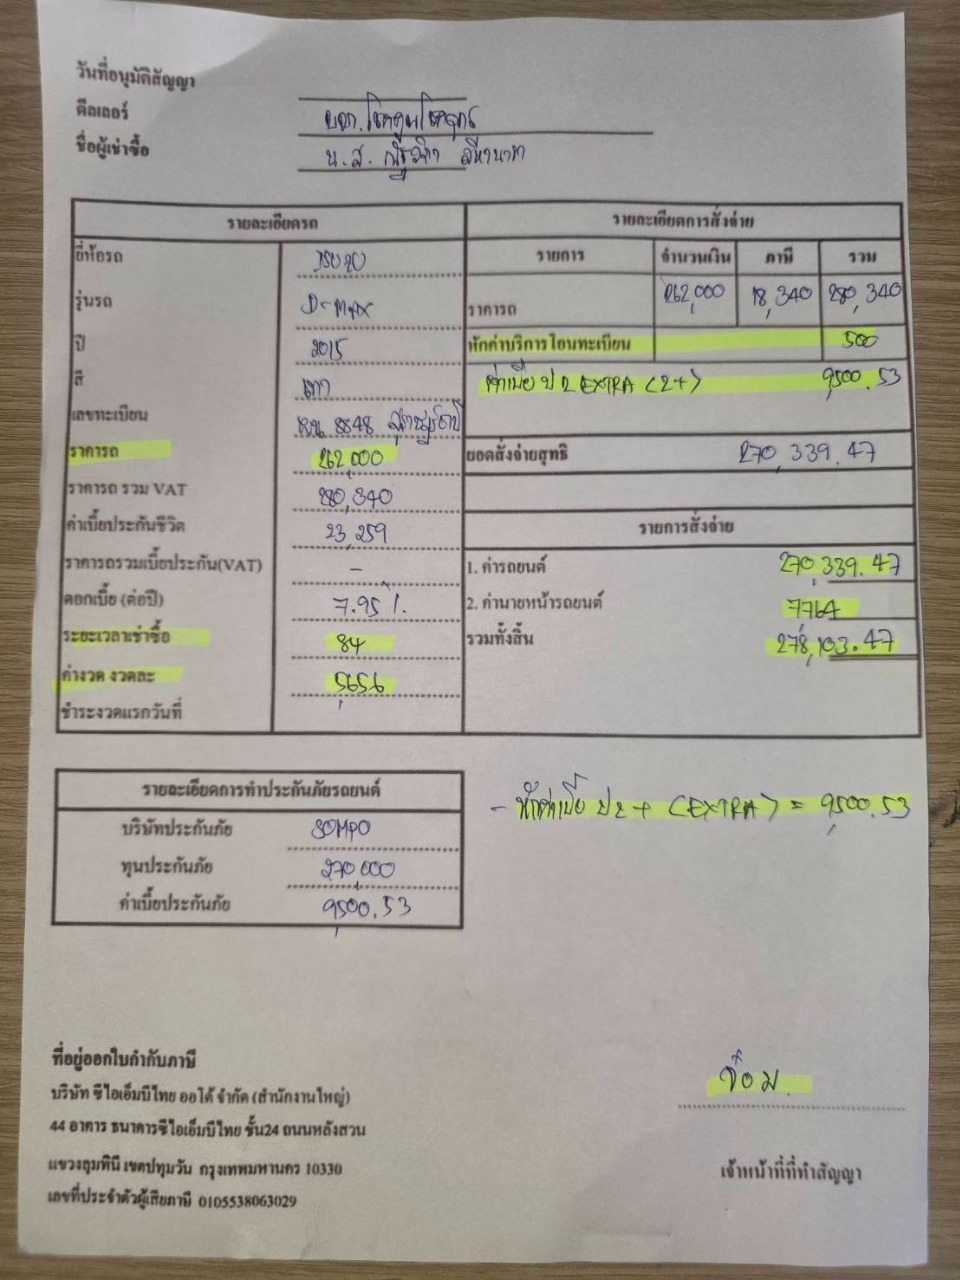 วันที่อนุมัติสัญญา
ดีลเลอร์ บจก. โชคคูณโชคฤทธิ์
ชื่อผู้เช่าซื้อ น.ส.
รายละเอียดรถ
ยี่ห้อรถ ISUZU
รุ่นรถ D-max
ปี 2015
สี เทา
เลขทะเบียน 8848 สุราษฎร์ธานี
ราคารถ 262,000
ราคารถ รวม VAT 280,340
ค่าเบี้ยประกันชีวิต 23,259
ราคารถรวมเบี้ยประกัน(VAT) -
ดอกเบี้ย (ต่อปี) 7.95 %
ระยะเวลาเช่าซื้อ 84
ค่างวด งวดละ 5,656
ชำระงวดแรกวันที่
รายละเอียดการสั่งจ่าย
รายการ จำนวนเงิน ภาษี รวม
ราคารถ 262,000 18,340 280,340
หักค่าบริการโอนทะเบียน 500
ค่าเบี้ย ป 2 EXTRA (2+) 9500.53
ยอดสั่งจ่ายสุทธิ 270,339.47
รายการสั่งจ่าย
1. ค่ารถยนต์ 270,339.47
2. ค่านายหน้ารถยนต์ 7,764
รวมทั้งสิ้น 278,103.47
รายละเอียดการทำประกันภัยรถยนต์
บริษัทประกันภัย SOMPO
ทุนประกันภัย 270,000
ค่าเบี้ยประกันภัย 9,500.53
- หักค่าเบี้ย ป 2+ (EXTRA) = 9,500.53
ที่อยู่ออกใบกำกับภาษี
บริษัท ซีไอเอ็มบีไทย ออโต้ จำกัด (สำนักงานใหญ่)
44 อาคาร ธนาคารซีไอเอ็มบีไทย ชั้น24 ถนนหลังสวน
แขวงลุมพินี เขตปทุมวัน กรุงเทพมหานคร 10330
เลขที่ประจำตัวผู้เสียภาษี 0105538063029
จ๋อม
เจ้าหน้าที่ที่ทำสัญญา